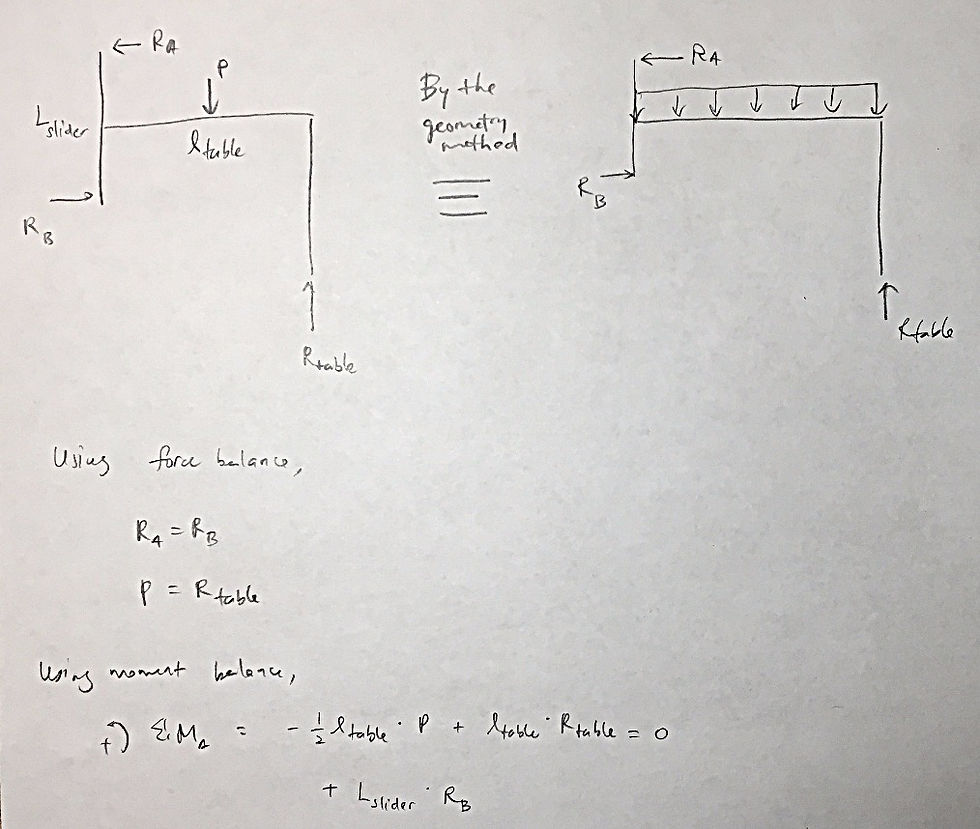 ← R_A
P
L_slider
l_table
R_B
R_table
By the
geometry
method
≡
← R_A
R_B
R_table
Using force balance,
R_A = R_B
P = R_table
Using moment balance,
+) ΣM_A = - 1/2 l_table · P + l_table · R_table = 0
+ L_slider · R_B